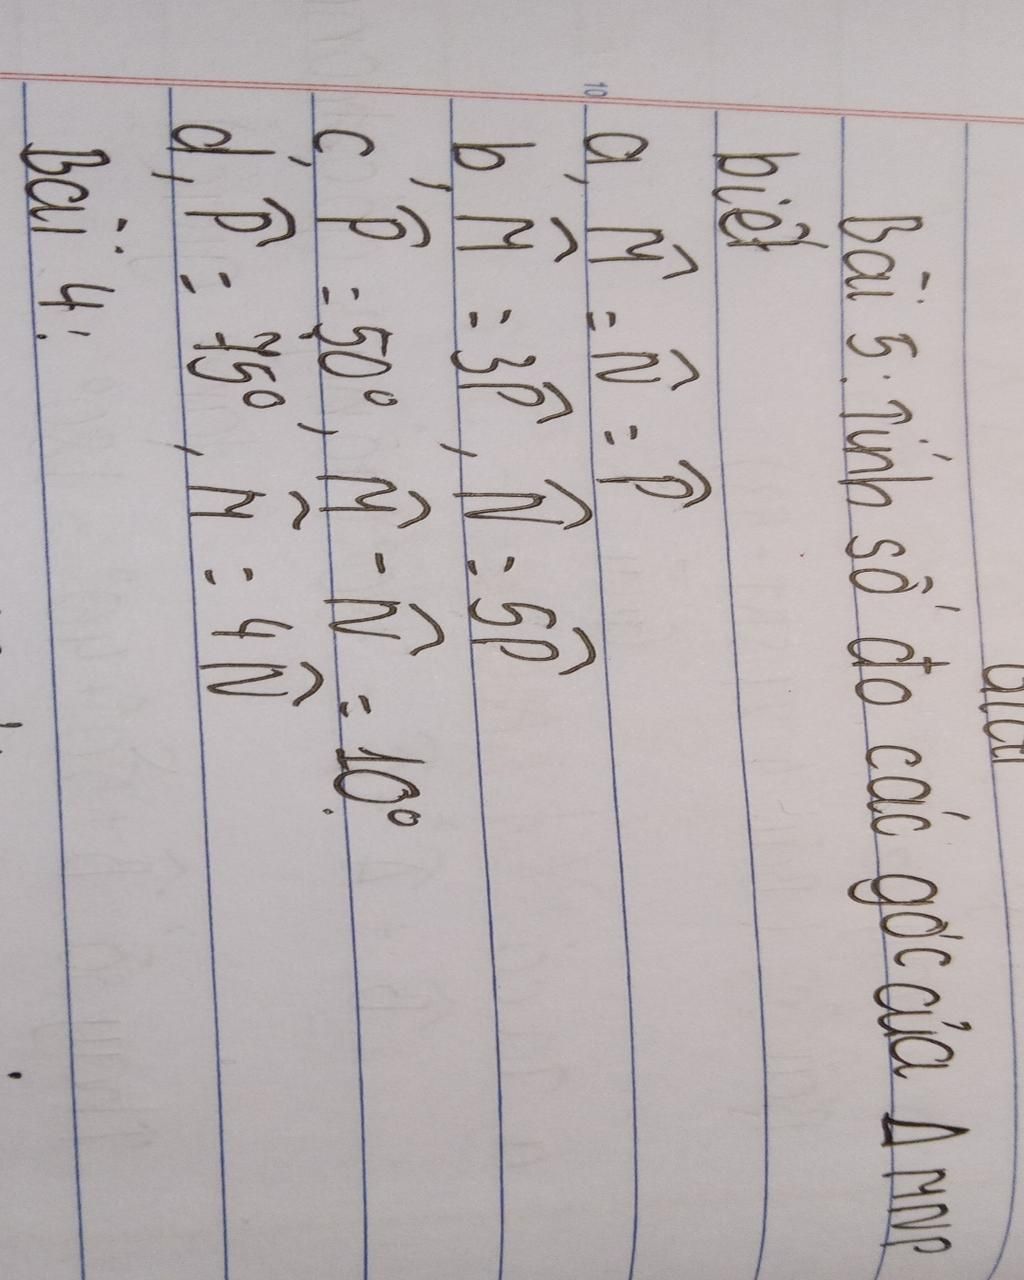 Bài 5: Tính số đo các góc của Δ MNP
biết
a, M̂ = N̂ = P̂
b, M̂ = 3P̂, N̂ = 5P̂
c, P̂ = 50°, M̂ - N̂ = 10°
d, P̂ = 75°, M̂ = 4N̂
Bài 4:
10